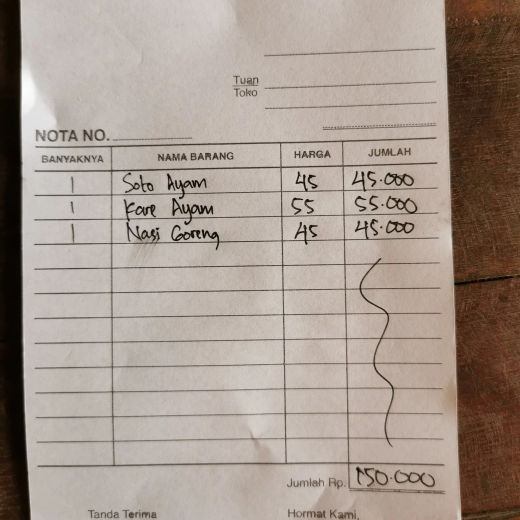 Tuan
Toko
NOTA NO.
BANYAKNYA NAMA BARANG HARGA JUMLAH
1 Soto Ayam 45 45.000
1 Kare Ayam 55 55.000
1 Nasi Goreng 45 45.000
Jumlah Rp. 150.000
Tanda Terima Hormat Kami,